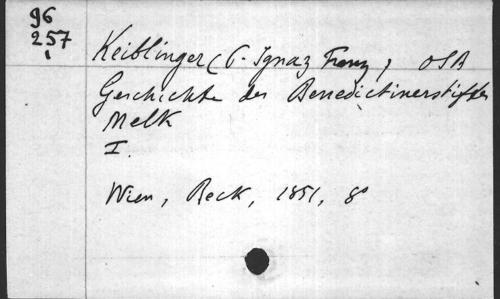 96
257
Keiblinger (P. Ignaz Franz) OSB
Geschichte des Benedictinerstiftes
Melk
I.
Wien, Beck, 1851, 8°